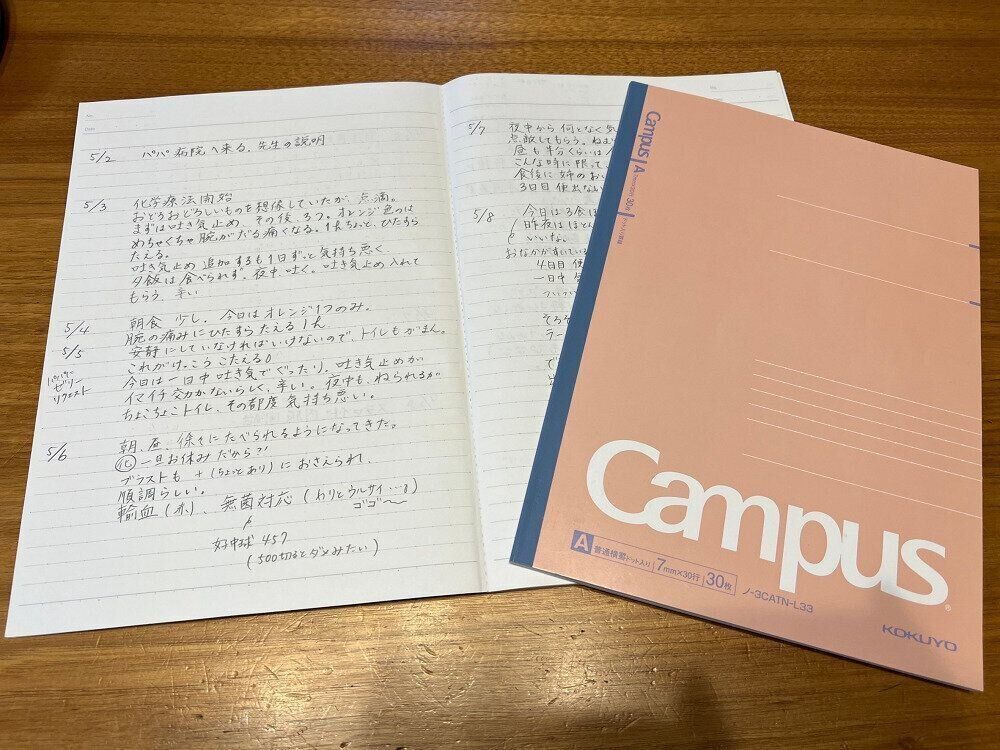 No.
Date
5/2 パパ病院へ来る、先生の説明
5/3 化学療法開始
おどろおどろしいものを想像していたが、点滴。
まずは吐き気止め、その後、3つ。オレンジ色のは
めちゃくちゃ腕がだる痛くなる。1hちょっと、ひたすら
たえる。
吐き気止め 追加するも1日ずっと気持ち悪く
夕飯は食べられず。夜中、吐く。吐き気止め入れて
もらう。辛い
5/4 朝食 少し、今日はオレンジ1つのみ。
腕の痛みにひたすらたえる1h。
5/5 安静にしていなければいけないので、トイレもがまん。
これがけっこうこたえる
ゼリー
リクエスト
今日は一日中吐き気でぐったり。吐き気止めが
イマイチ効かないらしく、辛い。夜中も、ねられるが
ちょこちょこトイレ、その都度 気持ち悪い。
5/6 朝、昼、徐々にたべられるようになってきた。
化 一旦お休みだから?!
ブラストも + (ちょっとあり) におさえられ、
順調らしい。
輸血 (赤)、無菌対応 (わりとウルサイ…
ゴゴ〜
好中球 457
(500切るとダメみたい)
5/7 夜中から何となく気
点滴してもらう。ねむ
昼も半分くらいは
こんな時に限って
食後に姉のおい
3日目 便出ない
5/8 今日は3食
昨夜はほとん
いいな。
おなかがすいている
4日目 便
一日中
Campus A 7mm×30行 30枚
Campus
A 普通横罫 ドット入り 7mm×30行 30枚
ノ-3CATN-L33
KOKUYO